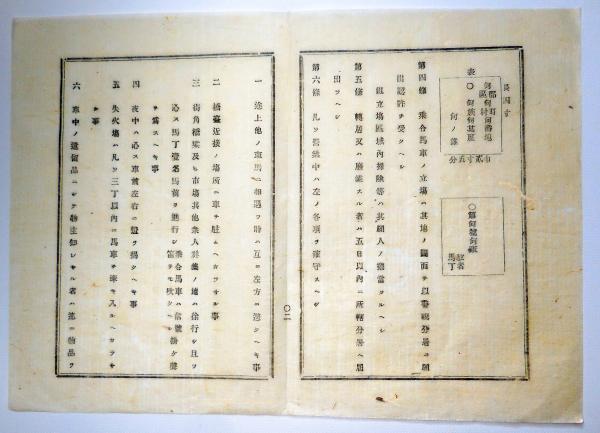 長四寸
表
何郡
區何町
何村何番地
〇何族何某雇
何ノ誰
巾貳寸五分
〇第何號何輛
馭者
馬丁
第四條 乘合馬車ノ立場ハ其地ノ圖面ヲ以警視分署エ願
出認許ヲ受クヘシ
但立場區域内掃除等ハ其願人ノ擔當タルヘシ
第五條 轉居又ハ廢業スル者ハ五日以内ニ所轄分署ヘ屆
出ツヘシ
第六條 凡ソ營業中ハ左ノ各項ヲ確守スヘシ
〇二
一 途上他ノ車馬ニ相遇フ時ハ互ニ左方ニ避クヘキ事
二 橋臺近接ノ場所ニ車ヲ駐ムヘカラサル事
三 街角橋梁及ヒ市場其他衆人群集ノ地ハ徐行シ且ツ
必ス馬丁壹名馬前ヲ進行シ
乘合馬車ハ信號
ヲ爲スヘキ事
四 夜中ハ必ス車前左右ニ燈ヲ揭クヘキ事
五 失火場ハ凡ソ三丁以内ニ馬車ヲ乘キ入ルヘカラサ
ル事
六 車中ノ遺留品ニシテ物主知レサル者ハ速ニ物品ヲ